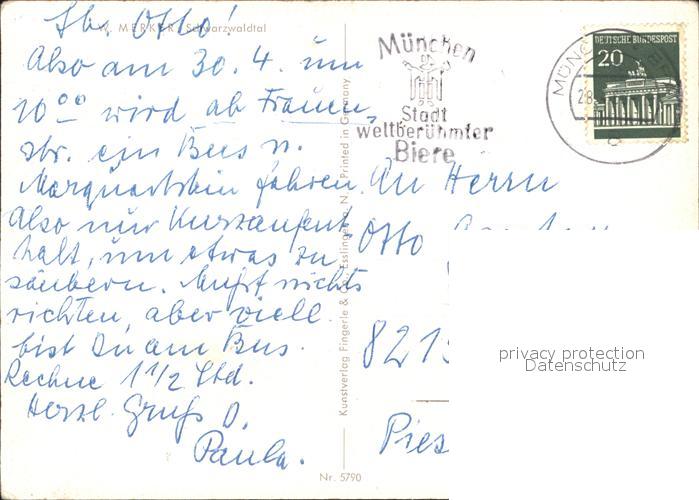 W. MERKER, Schwarzwaldtal
Lbr. Otto!
Also am 30. 4. um
10°° wird ab Frauen-
str. ein Bus n.
Marquartstein fahren.
Also nur Kurzaufent-
halt, um etwas zu
säubern. Mußt nichts
richten, aber viell.
bist Du am Bus.
Rechne 1 1/2 Std.
Herzl. Gruß D.
Paula.
Kunstverlag Fingerle & Co., Esslingen a. N. Printed in Germany
Nr. 5790
München
Stadt
weltberühmter
Biere
DEUTSCHE BUNDESPOST
20
MÜNC
28
An Herrn
Otto
821
Pies
privacy protection
Datenschutz